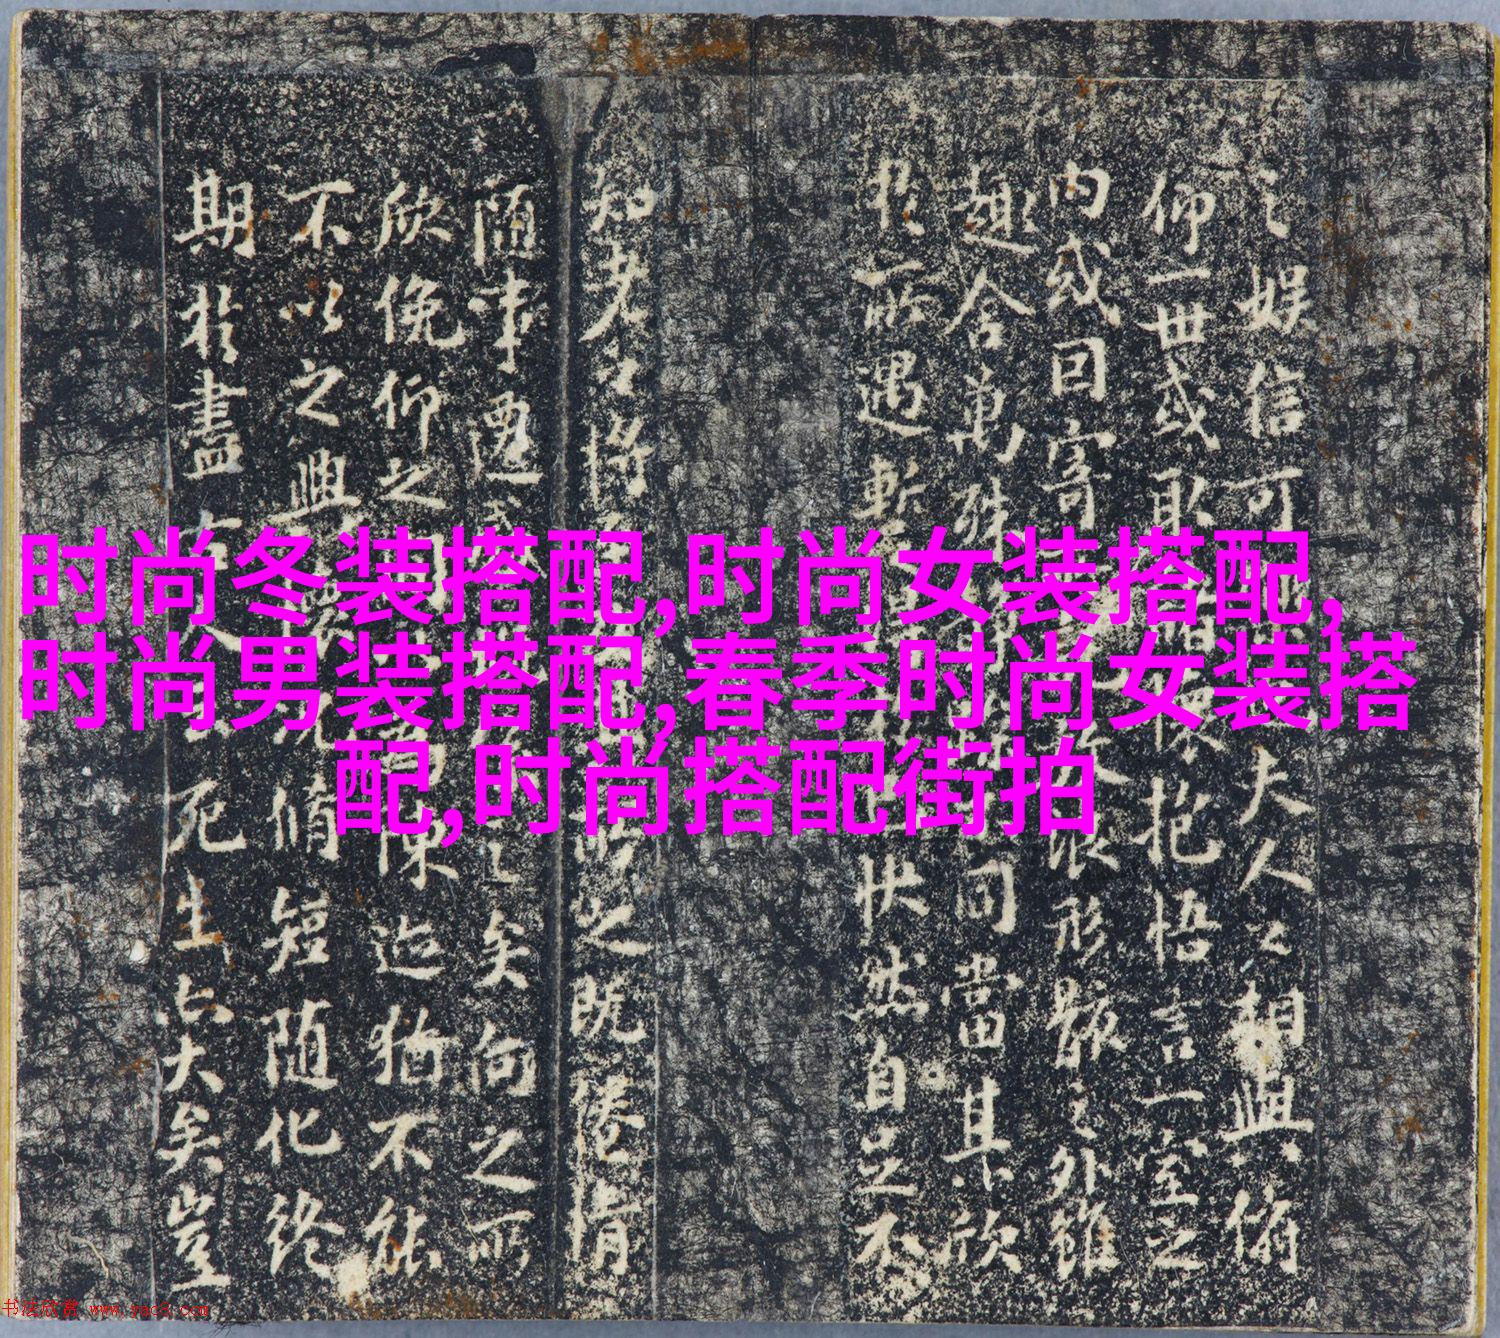 时尚冬装搭配,时尚女装搭配,
时尚男装搭配,春季时尚女装搭
配,时尚搭配街拍
之娱信可夫人之相與俯
仰一世或取懷抱悟言一室之
内或因寄形骸之外雖
趣舍萬殊同當其欣
於所遇暫快然自足不
知老之將之既惓情
随事遷矣向之所
欣俛仰之間陳迹猶不能
不以之興懷况脩短随化終
期於盡古人死生亡大矣豈
书法欣赏 www.yac8.com